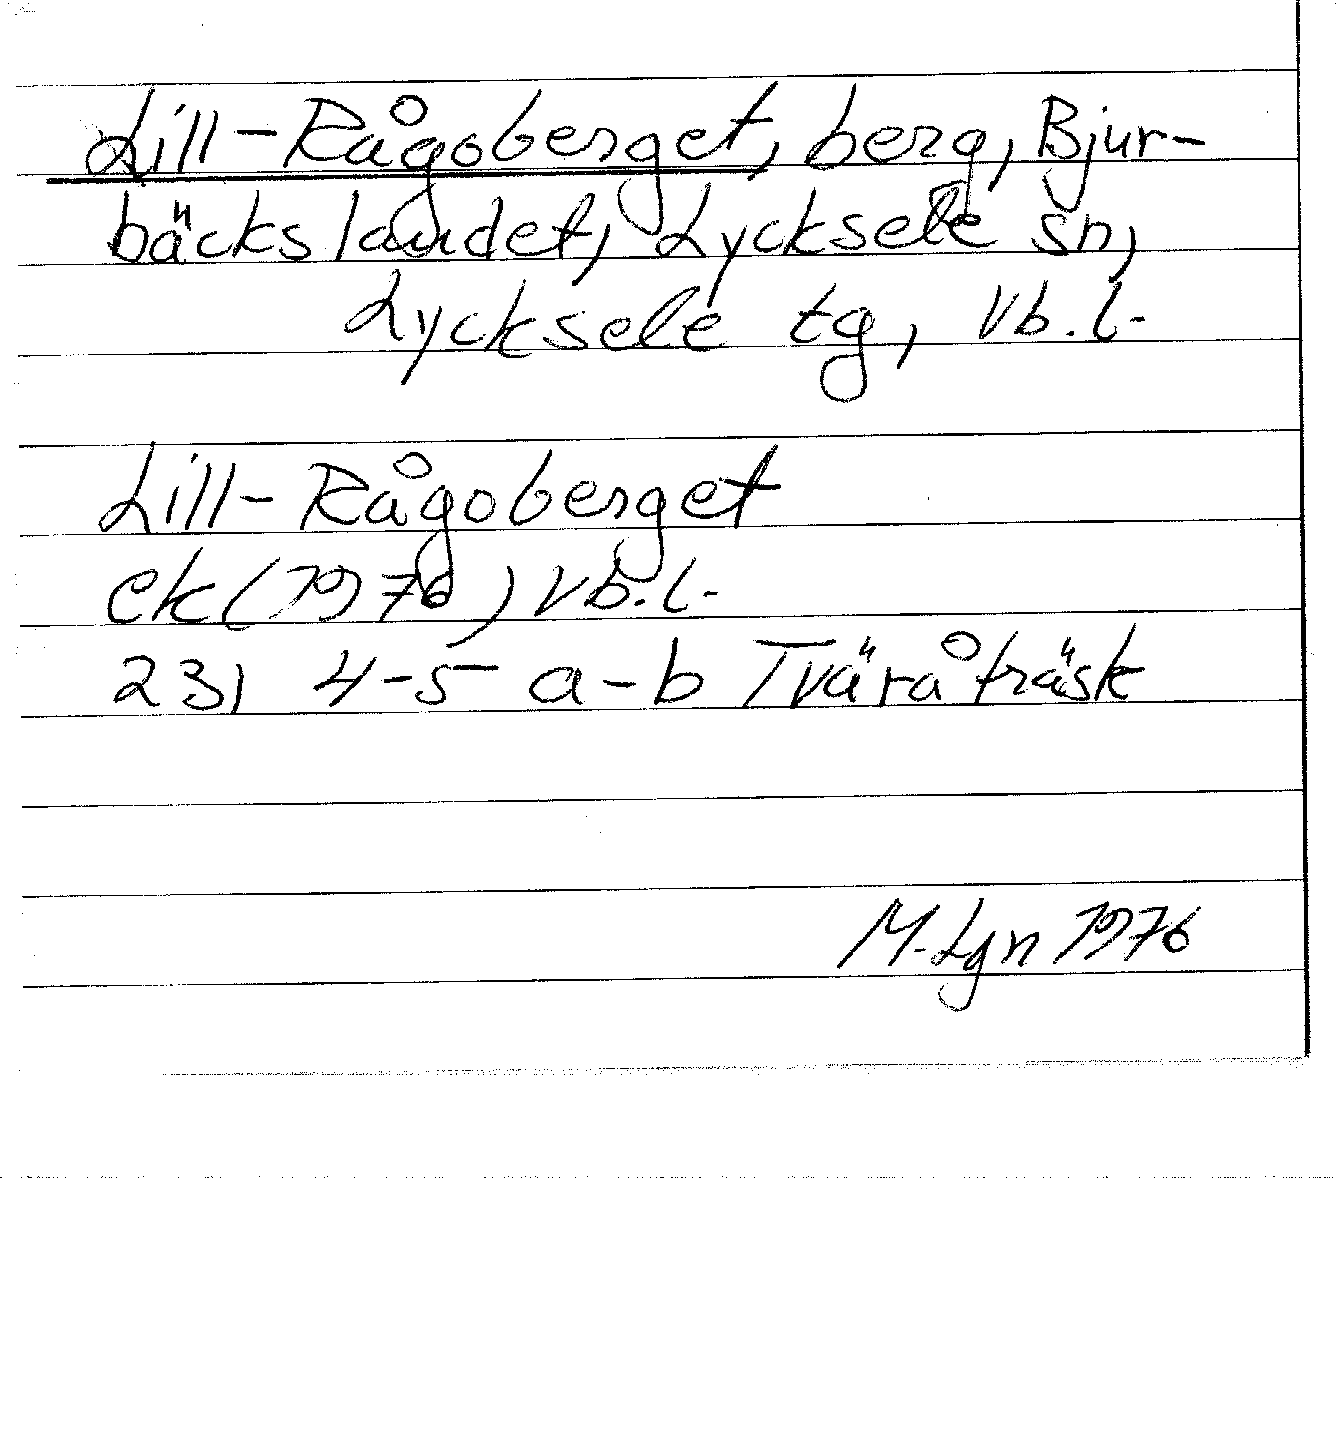 Lill-Rågoberget, berg, Bjur-
bäckslandet, Lycksele sn,
Lycksele tg, Vb.l.
Lill-Rågoberget
ek(1976) Vb.l.
23J 4-5 a-b Tväråträsk
M.Lgn 1976